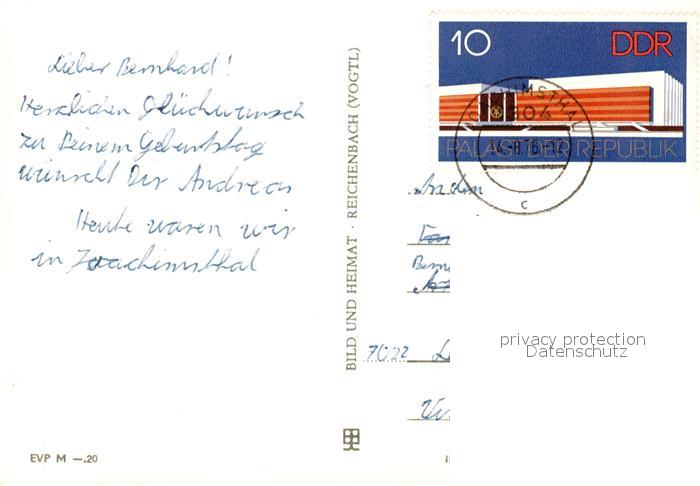 Lieber Bernhard!
Herzlichen Glückwunsch
zu Deinem Geburtstag
wünscht Dir Andreas
Heute waren wir
in Joachimsthal
EVP M —.20
BILD UND HEIMAT · REICHENBACH (VOGTL)
10 DDR
PALAST DER REPUBLIK
c
An den
7022
privacy protection
Datenschutz